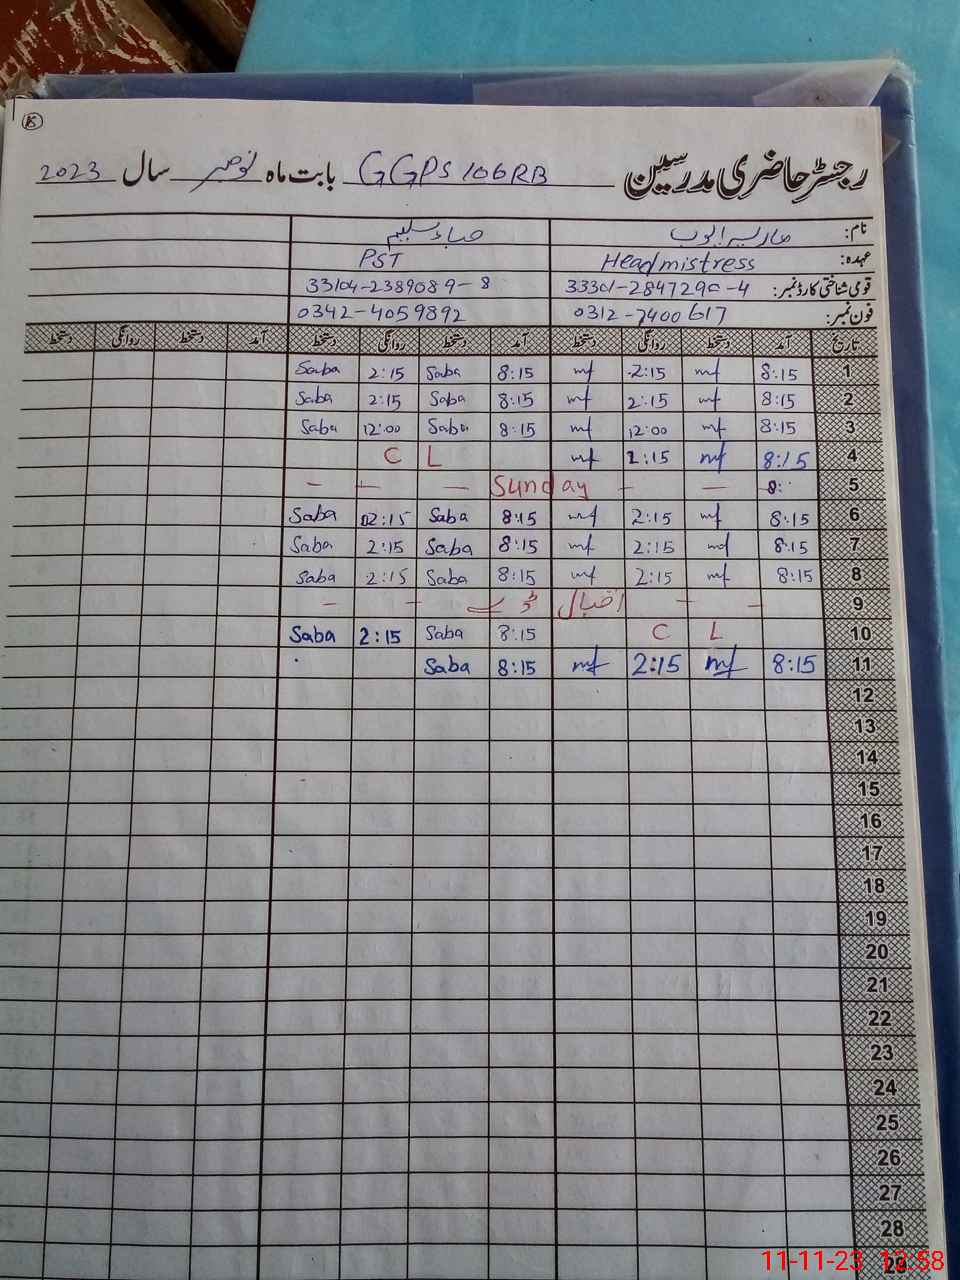 رجسٹر حاضری مدرسین GGPS 106RB بابت ماہ نومبر سال 2023
نام: صباء سلیم
عہدہ: Headmistress PST
قومی شناختی کارڈ نمبر: 33301-2847290-4 33104-2389089-8
فون نمبر: 0312-7400617 0342-4059892
تاریخ آمد دستخط روانگی دستخط آمد دستخط روانگی دستخط آمد دستخط روانگی دستخط
1 8:15 mf 2:15 mf 8:15 Saba 2:15 Saba
2 8:15 mf 2:15 mf 8:15 Saba 2:15 Saba
3 8:15 mf 12:00 mf 8:15 Saba 12:00 Saba
4 8:15 mf 2:15 mf C L
5 8: — — Sunday — — -
6 8:15 mf 2:15 mf 8:15 Saba 02:15 Saba
7 8:15 mf 2:15 mf 8:15 Saba 2:15 Saba
8 8:15 mf 2:15 mf 8:15 Saba 2:15 Saba
9 — — اقبال ڈے - - -
10 C L 8:15 Saba 2:15 Saba
11 8:15 mf 2:15 mf 8:15 Saba
12
13
14
15
16
17
18
19
20
21
22
23
24
25
26
27
28
29
11-11-23 12:58